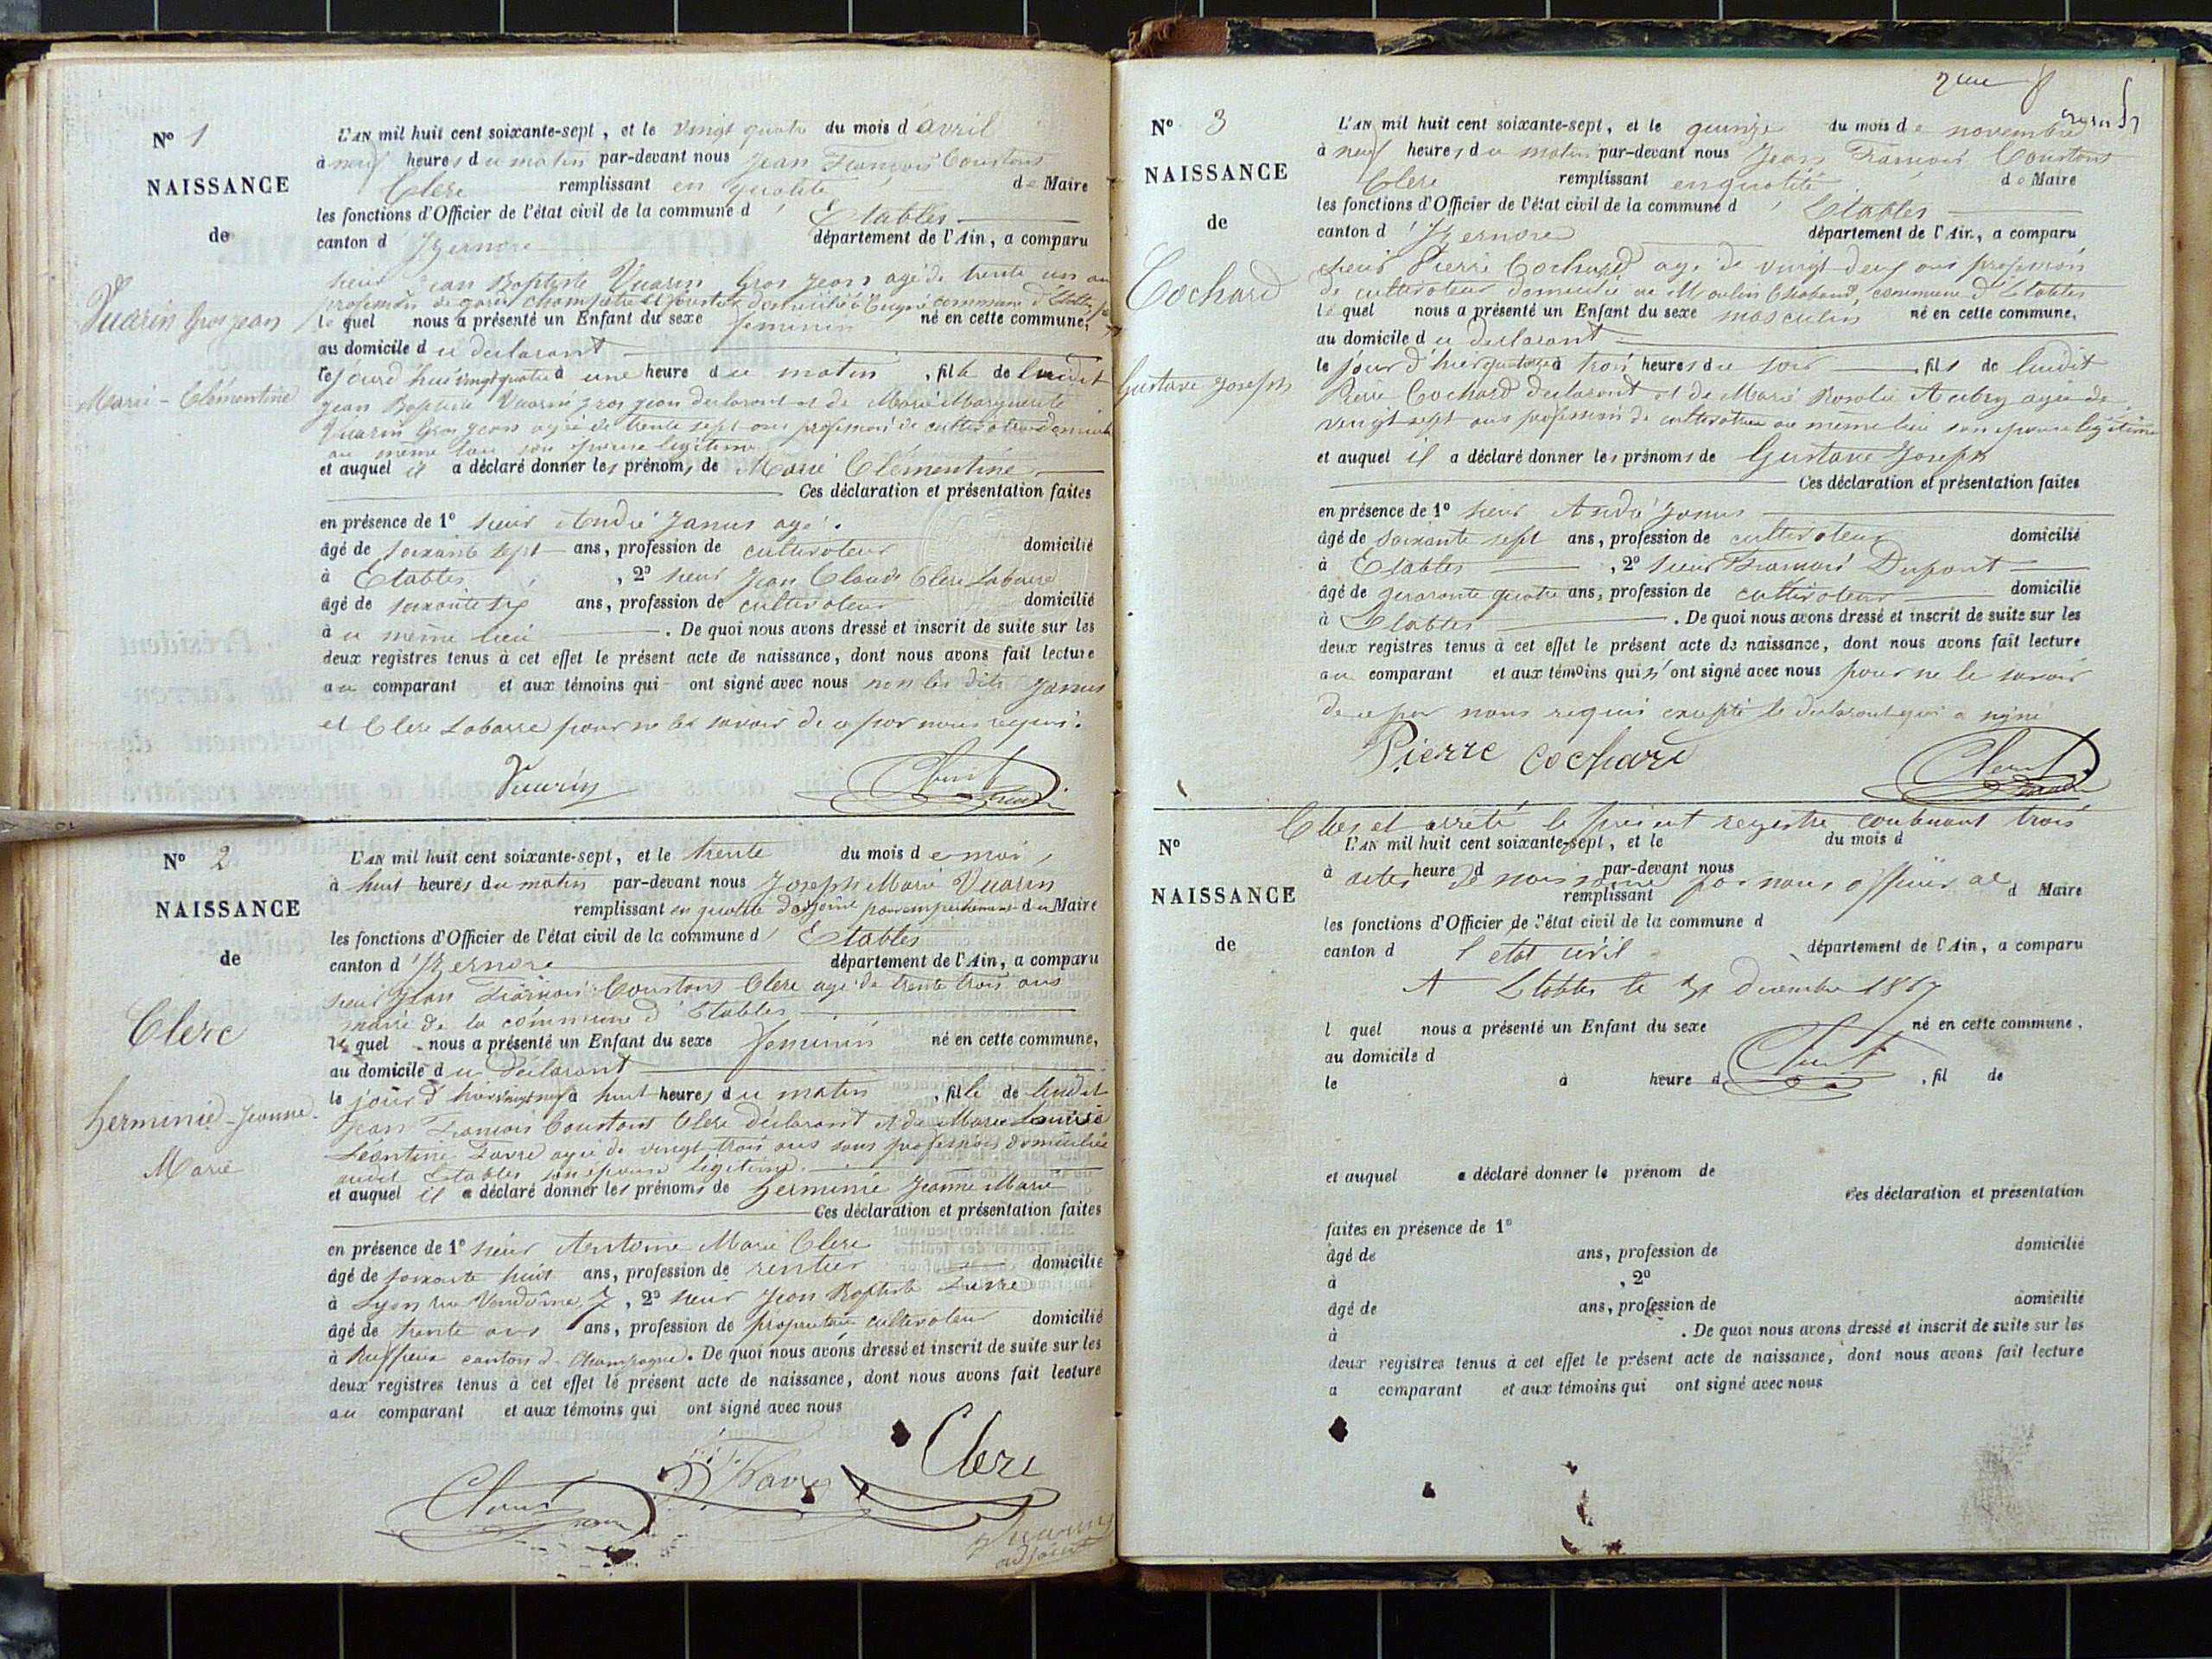 N° 1
NAISSANCE
de
Vuarin Gros jean
Marie - Clémentine
L'AN mil huit cent soixante-sept, et le vingt quatre du mois d'avril
à neuf heures du matin par-devant nous Jean François Constant
Clerc remplissant en qualité de Maire
les fonctions d'Officier de l'état civil de la commune d' Etables
canton d' Izernore département de l'Ain, a comparu
sieur Jean Baptiste Vuarin Gros Jean agé de trente un an
profession de garde champêtre et domicilié à commune d'Etables
lequel nous a présenté un Enfant du sexe feminin né en cette commune,
au domicile du declarant
le jourd'hui vingt quatre à une heure du matin, fille de ludit
Jean Baptiste Vuarin gros jean declarant et de Marie Marguerite
Vuarin Gros jean agée de trente sept ans profession de cultivatrice
au même lieu son épouse legitime
et auquel il a déclaré donner les prénoms de Marie Clémentine
Ces déclaration et présentation faites
en présence de 1° sieur André Janus agé
âgé de soixante sept ans, profession de cultivateur domicilié
à Etables, 2° sieur Jean Claude Clerc Labarre
âgé de soixante six ans, profession de cultivateur domicilié
à u même lieu. De quoi nous avons dressé et inscrit de suite sur les
deux registres tenus à cet effet le présent acte de naissance, dont nous avons fait lecture
au comparant et aux témoins qui ont signé avec nous non les dits Janus
et Clerc Labarre pour ne le savoir de ce par nous requis.
Vuarin
N° 2
NAISSANCE
de
Clerc
herminie - Jeanne
Marie
L'AN mil huit cent soixante-sept, et le trente du mois de mai
à huit heures du matin par-devant nous Joseph Marie Vuarin
remplissant en qualité d'adjoint pour empechement du Maire
les fonctions d'Officier de l'état civil de la commune d' Etables
canton d' Izernore département de l'Ain, a comparu
sieur Jean François Constant Clerc agé de trente trois ans
maire de la commune d'Etables
lequel nous a présenté un Enfant du sexe feminin né en cette commune,
au domicile du declarant
le jour d'hier vingt neuf à huit heures du matin, fille de ludit
Jean François Constant Clerc déclarant et de Marie Louise
Léontine Favre agée de vingt trois ans sans profession domiciliée
audit Etables son épouse legitime
et auquel il a déclaré donner les prénoms de herminie Jeanne Marie
Ces déclaration et présentation faites
en présence de 1° sieur Antoine Marie Clerc
âgé de soixante huit ans, profession de rentier domicilié
à Lyon rue Vendôme 7, 2° sieur Jean Baptiste Favre
âgé de trente ans ans, profession de propriétaire cultivateur domicilié
à Ruffieux canton de Champagne. De quoi nous avons dressé et inscrit de suite sur les
deux registres tenus à cet effet le présent acte de naissance, dont nous avons fait lecture
au comparant et aux témoins qui ont signé avec nous
Clerc
Favre
Vuarin
adjoint
N° 3
NAISSANCE
de
Cochard
Gustave Joseph
L'AN mil huit cent soixante-sept, et le quinze du mois de novembre
à neuf heures du matin par-devant nous Jean François Constant
Clerc remplissant en qualité de Maire
les fonctions d'Officier de l'état civil de la commune d' Etables
canton d' Izernore département de l'Ain, a comparu
sieur Pierre Cochard agé de vingt deux ans profession
de cultivateur domicilié au Moulin Chabaud, commune d'Etables
lequel nous a présenté un Enfant du sexe masculin né en cette commune,
au domicile du declarant
le jour d'hier quatorze à trois heures du soir, fils de ludit
Pierre Cochard declarant et de Marie Rosalie Aubry agée de
vingt sept ans profession de cultivatrice au même lieu son epouse legitime
et auquel il a déclaré donner les prénoms de Gustave Joseph
Ces déclaration et présentation faites
en présence de 1° sieur André Janus
âgé de soixante sept ans, profession de cultivateur domicilié
à Etables, 2° sieur François Dupont
âgé de quarante quatre ans, profession de cultivateur domicilié
à Etables. De quoi nous avons dressé et inscrit de suite sur les
deux registres tenus à cet effet le présent acte de naissance, dont nous avons fait lecture
au comparant et aux témoins qui n'ont signé avec nous pour ne le savoir
de ce par nous requis excepté le declarant qui a signé
Pierre Cochard
Clos et arrêté le présent registre contenant trois
N°
NAISSANCE
de
L'AN mil huit cent soixante-sept, et le du mois d
à heure d par-devant nous
actes de naissance par nous officier de
remplissant d Maire
les fonctions d'Officier de l'état civil de la commune d
canton d département de l'Ain, a comparu
l'etat civil
A Etables le 31 Decembre 1867
l quel nous a présenté un Enfant du sexe né en cette commune.
au domicile d
le à heure d, fil de
et auquel a déclaré donner le prénom de
Ces déclaration et présentation
faites en présence de 1°
âgé de ans, profession de domicilié
à , 2°
âgé de ans, profession de domicilié
à . De quoi nous avons dressé et inscrit de suite sur les
deux registres tenus à cet effet le présent acte de naissance, dont nous avons fait lecture
a comparant et aux témoins qui ont signé avec nous